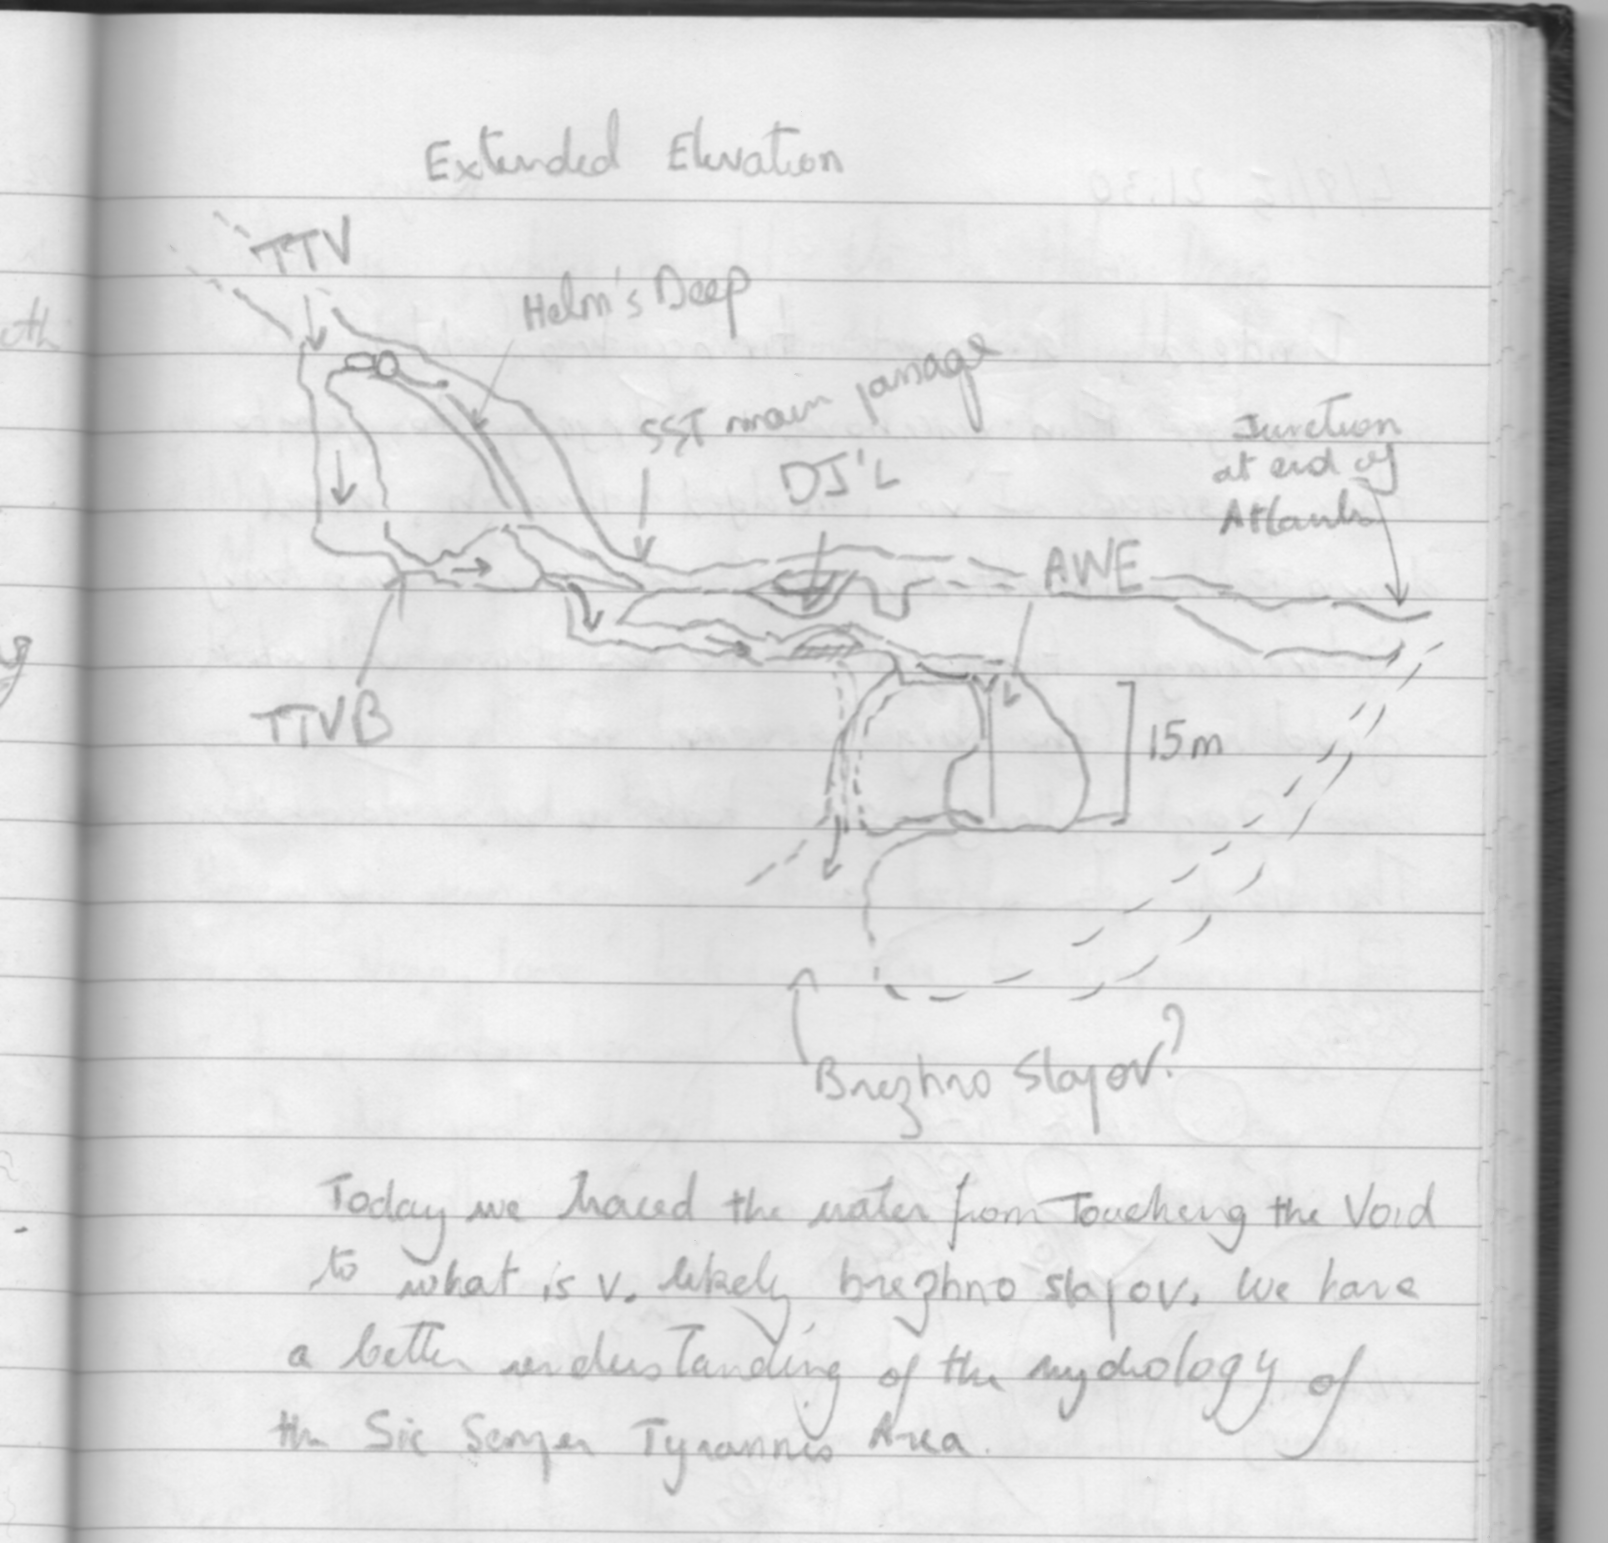 Extended Elevation
TTV
Helm's Deep
SST main passage
DJ'L
Junction
at end of
Atlantis
AWE
TTVB
15m
Brezhno Slapov?
Today we traced the water from Touching the Void
to what is v. likely brezhno slapov. We have
a better understanding of the hydrology of
the Sic Semper Tyrannis Area.